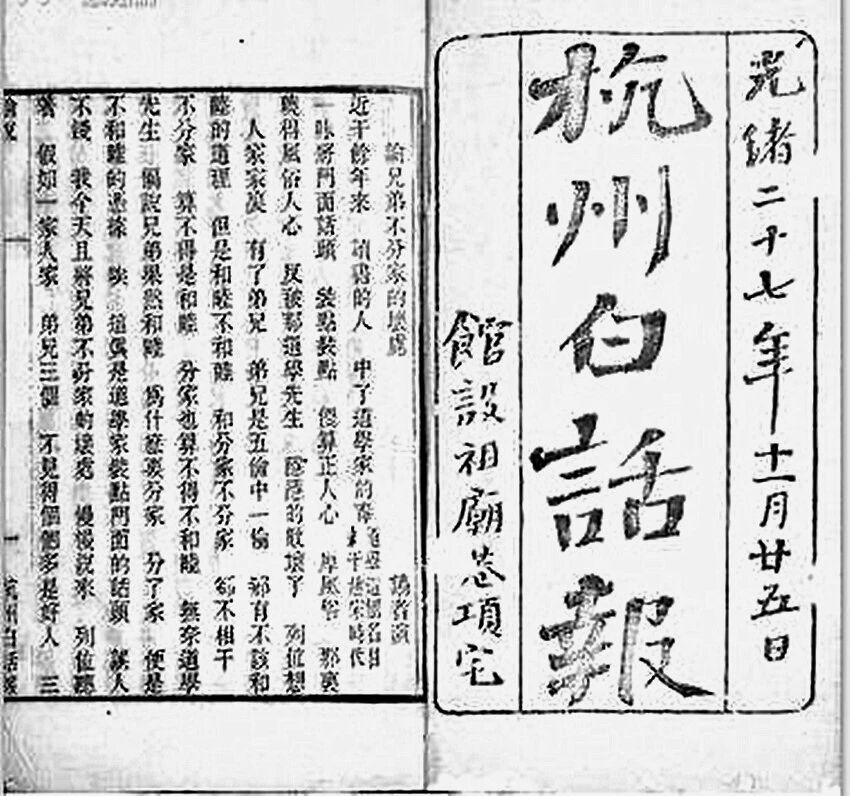 光緒二十七年十一月廿五日
杭州白話報
館設祖廟巷項宅
論兄弟不分家的壞處
近千餘年來 讀書的人 中了道學家的毒
一味將門面話頭 裝點裝點 便算正人心 厚風俗 那裏
曉得風俗人心 反被那道學先生 陰陰的敗壞了 列位想
人家家裏 有了弟兄 弟兄是五倫中一倫 那有不該和
睦的道理 但是和睦不和睦 和分家不分家 卻不相干
不分家 算不得是和睦 分家也算不得不和睦 無奈道學
先生 偏說兄弟果然和睦 爲什麽要分家 分了家 便是
不和睦的憑據 唉 這眞是道學家裝點門面的話頭 誤人
不淺 我今天且將兄弟不分家的壞處 慢慢說來 列位聽
著 假如一家人家 弟兄三個 不見得個個多是好人 三
論說 一 杭州白話報